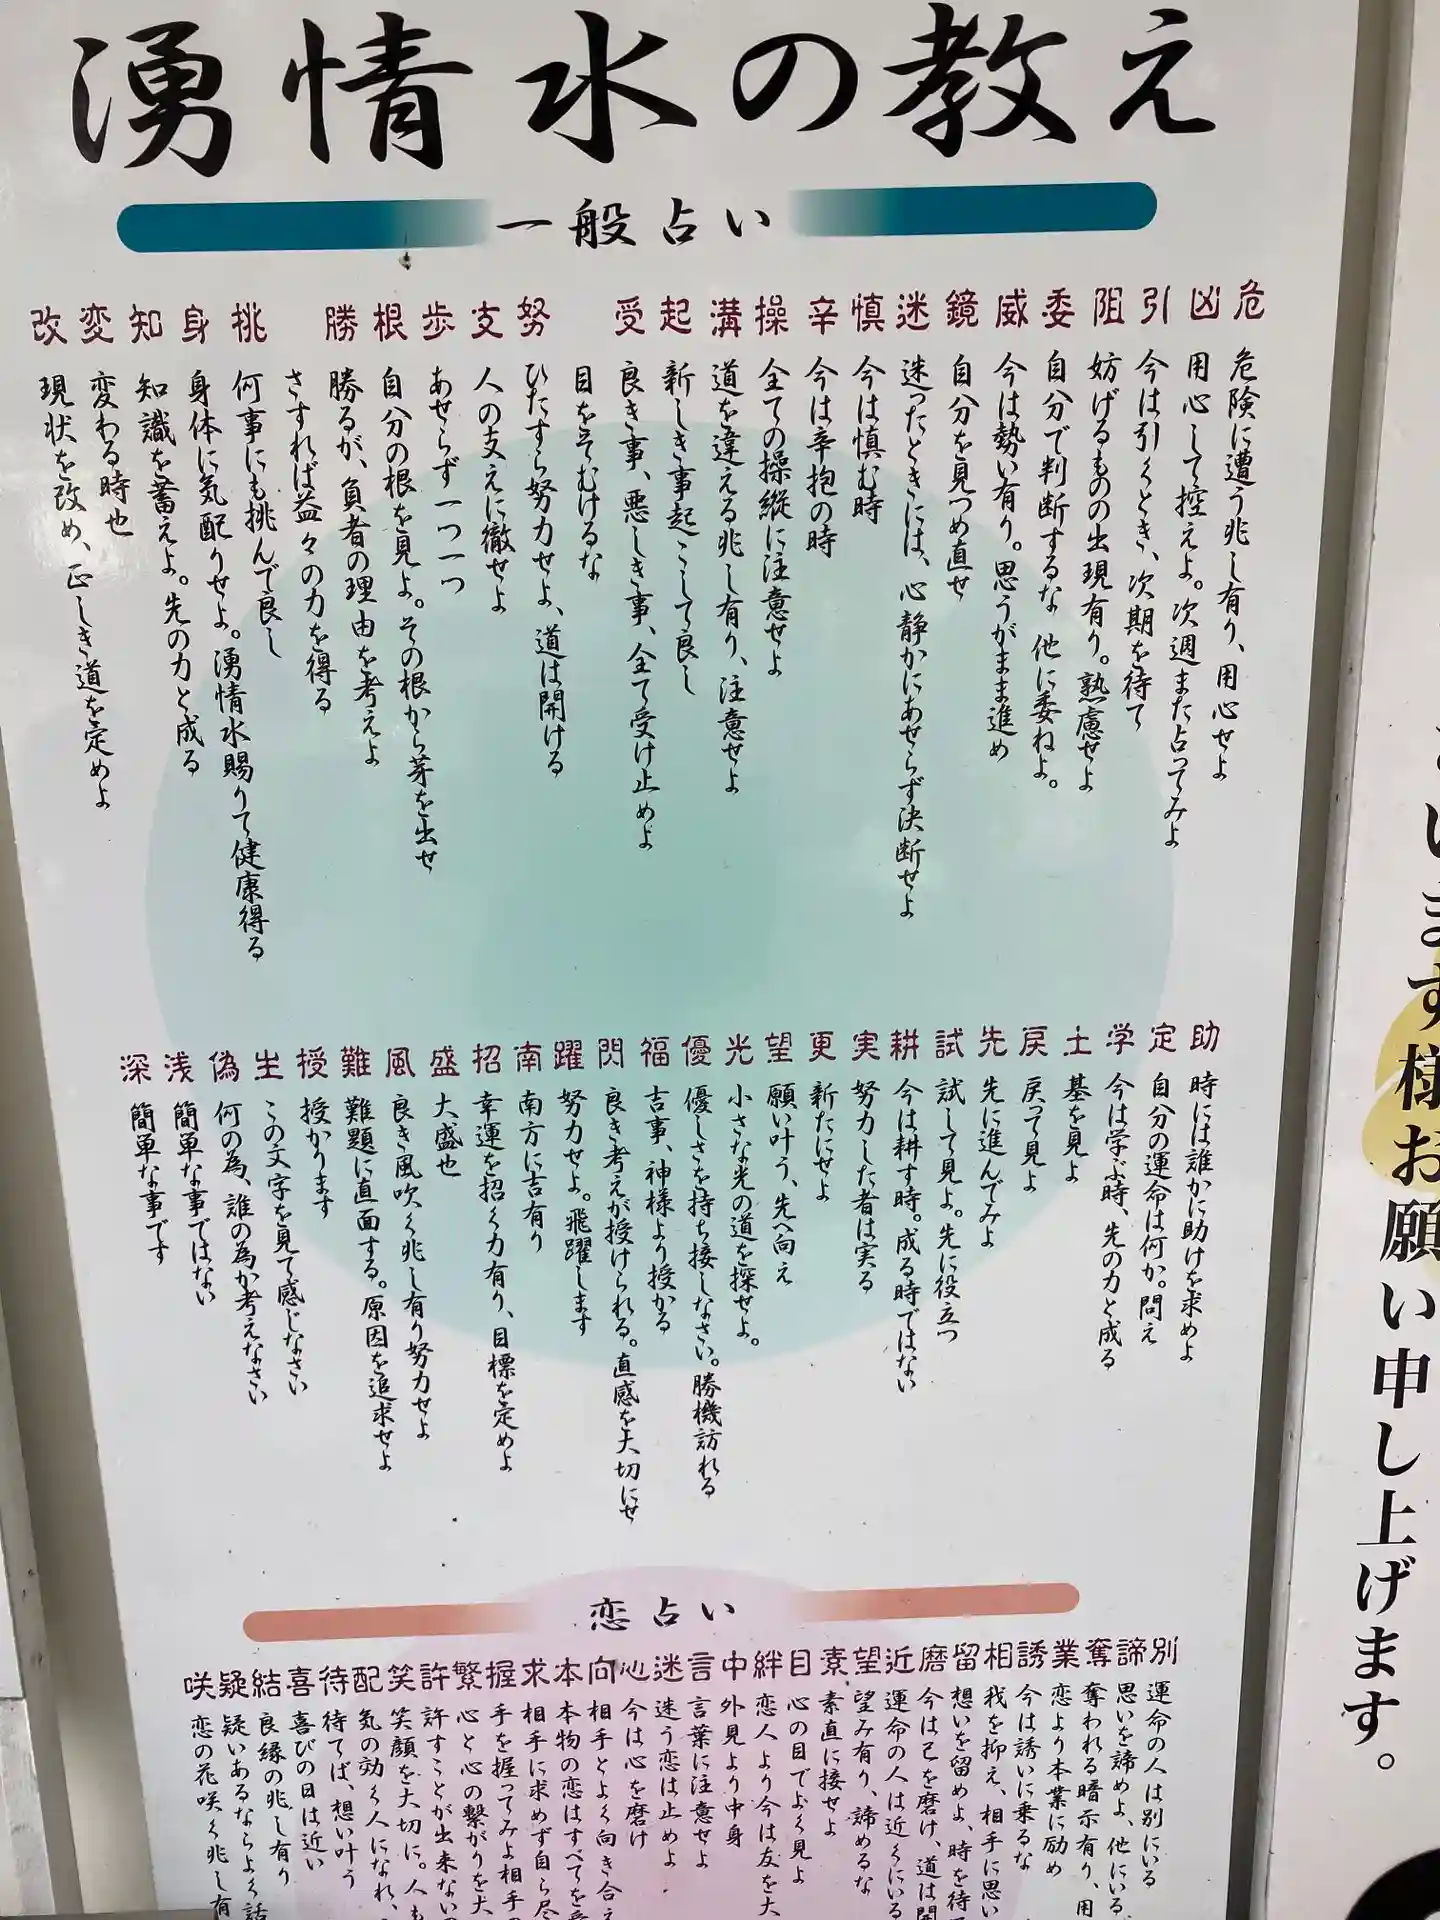 湧情水の教え
一般占い
危 危険に遭う兆し有り、用心せよ
凶 用心して控えよ。次週また占ってみよ
引 今は引くとき、次期を待て
阻 妨げるものの出現有り。熟慮せよ
委 自分で判断するな 他に委ねよ。
威 今は勢い有り。思うがまま進め
鏡 自分を見つめ直せ
迷 迷ったときには、心静かにあせらず決断せよ
慎 今は慎む時
辛 今は辛抱の時
操 全ての操縦に注意せよ
溝 道を違える兆し有り、注意せよ
起 新しき事起こして良し
受 良き事、悪しき事、全て受け止めよ
目をそむけるな
努 ひたすら努力せよ、道は開ける
支 人の支えに徹せよ
歩 あせらず一つ一つ
根 自分の根を見よ。その根から芽を出せ
勝 勝るが、負者の理由を考えよ
さすれば益々の力を得る
挑 何事にも挑んで良し
身 身体に気配りせよ。湧情水賜りて健康得る
知 知識を蓄えよ。先の力と成る
変 変わる時也
改 現状を改め、正しき道を定めよ
助 時には誰かに助けを求めよ
定 自分の運命は何か。問え
学 今は学ぶ時、先の力と成る
土 基を見よ
戻 戻って見よ
先 先に進んでみよ
試 試して見よ。先に役立つ
耕 今は耕す時。成る時ではない
実 努力した者は実る
更 新たにせよ
望 願い叶う、先へ向え
光 小さな光の道を探せよ。
優 優しさを持ち接しなさい。勝機訪れる
福 吉事、神様より授かる
閃 良き考えが授けられる。直感を大切にせ
躍 努力せよ。飛躍します
南 南方に吉有り
招 幸運を招く力有り、目標を定めよ
盛 大盛也
風 良き風吹く兆し有り努力せよ
難 難題に直面する。原因を追求せよ
授 授かります
生 この文字を見て感じなさい
偽 何の為、誰の為か考えなさい
浅 簡単な事ではない
深 簡単な事です
恋占い
別 運命の人は別にいる
諦 思いを諦めよ、他にいる
奪 奪われる暗示有り、用
業 恋より本業に励め
誘 今は誘いに乗るな
相 我を抑え、相手に思い
留 想いを留めよ、時を待
磨 今は己を磨け、道は開
近 運命の人は近くにいる
望 望み有り、諦めるな
素 素直に接せよ
目 心の目でよく見よ
絆 恋人より今は友を大
中 外見より中身
言 言葉に注意せよ
迷 迷う恋は止めよ
心 今は心を磨け
向 相手とよく向き合え
本 本物の恋はすべてを
求 相手に求めず自ら尽
握 手を握ってみよ相手の
繁 心と心の繋がりを大
許 許すことが出来ない
笑 笑顔を大切に。人も
配 気の効く人になれ、
待 待てば、想い叶う
喜 喜びの日は近い
結 良縁の兆し有り
疑 疑いあるならよく話
咲 恋の花咲く兆し有
います様お願い申し上げます。